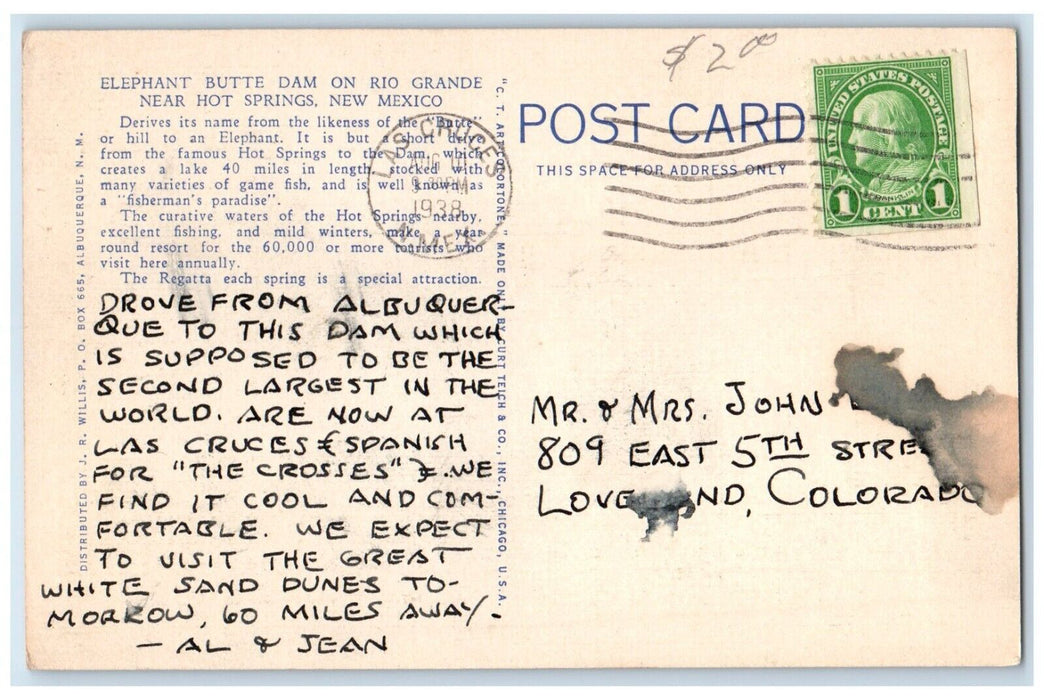 $2.00
ELEPHANT BUTTE DAM ON RIO GRANDE
NEAR HOT SPRINGS, NEW MEXICO
Derives its name from the likeness of the "Butte"
or hill to an Elephant. It is but a short drive
from the famous Hot Springs to the Dam, which
creates a lake 40 miles in length, stocked with
many varieties of game fish, and is well known as
a "fisherman's paradise".
The curative waters of the Hot Springs nearby,
excellent fishing, and mild winters, make a year
round resort for the 60,000 or more tourists who
visit here annually.
The Regatta each spring is a special attraction.
DROVE FROM ALBUQUER-
QUE TO THIS DAM WHICH
IS SUPPOSED TO BE THE
SECOND LARGEST IN THE
WORLD. ARE NOW AT
LAS CRUCES {SPANISH
FOR "THE CROSSES"}. WE
FIND IT COOL AND COM-
FORTABLE. WE EXPECT
TO VISIT THE GREAT
WHITE SAND DUNES TO-
MORROW, 60 MILES AWAY.
— AL & JEAN
DISTRIBUTED BY J. R. WILLIS, P. O. BOX 665, ALBUQUERQUE, N. M.
"C. T. ART-COLORTONE" MADE ONLY BY CURT TEICH & CO., INC., CHICAGO, U.S.A.
POST CARD
THIS SPACE FOR ADDRESS ONLY
LAS CRUCES
AUG
PM
1938
N. MEX.
UNITED STATES POSTAGE
FRANKLIN
1 CENT 1
MR. & MRS. JOHN
809 EAST 5TH STRE
LOVE ND, COLORADO